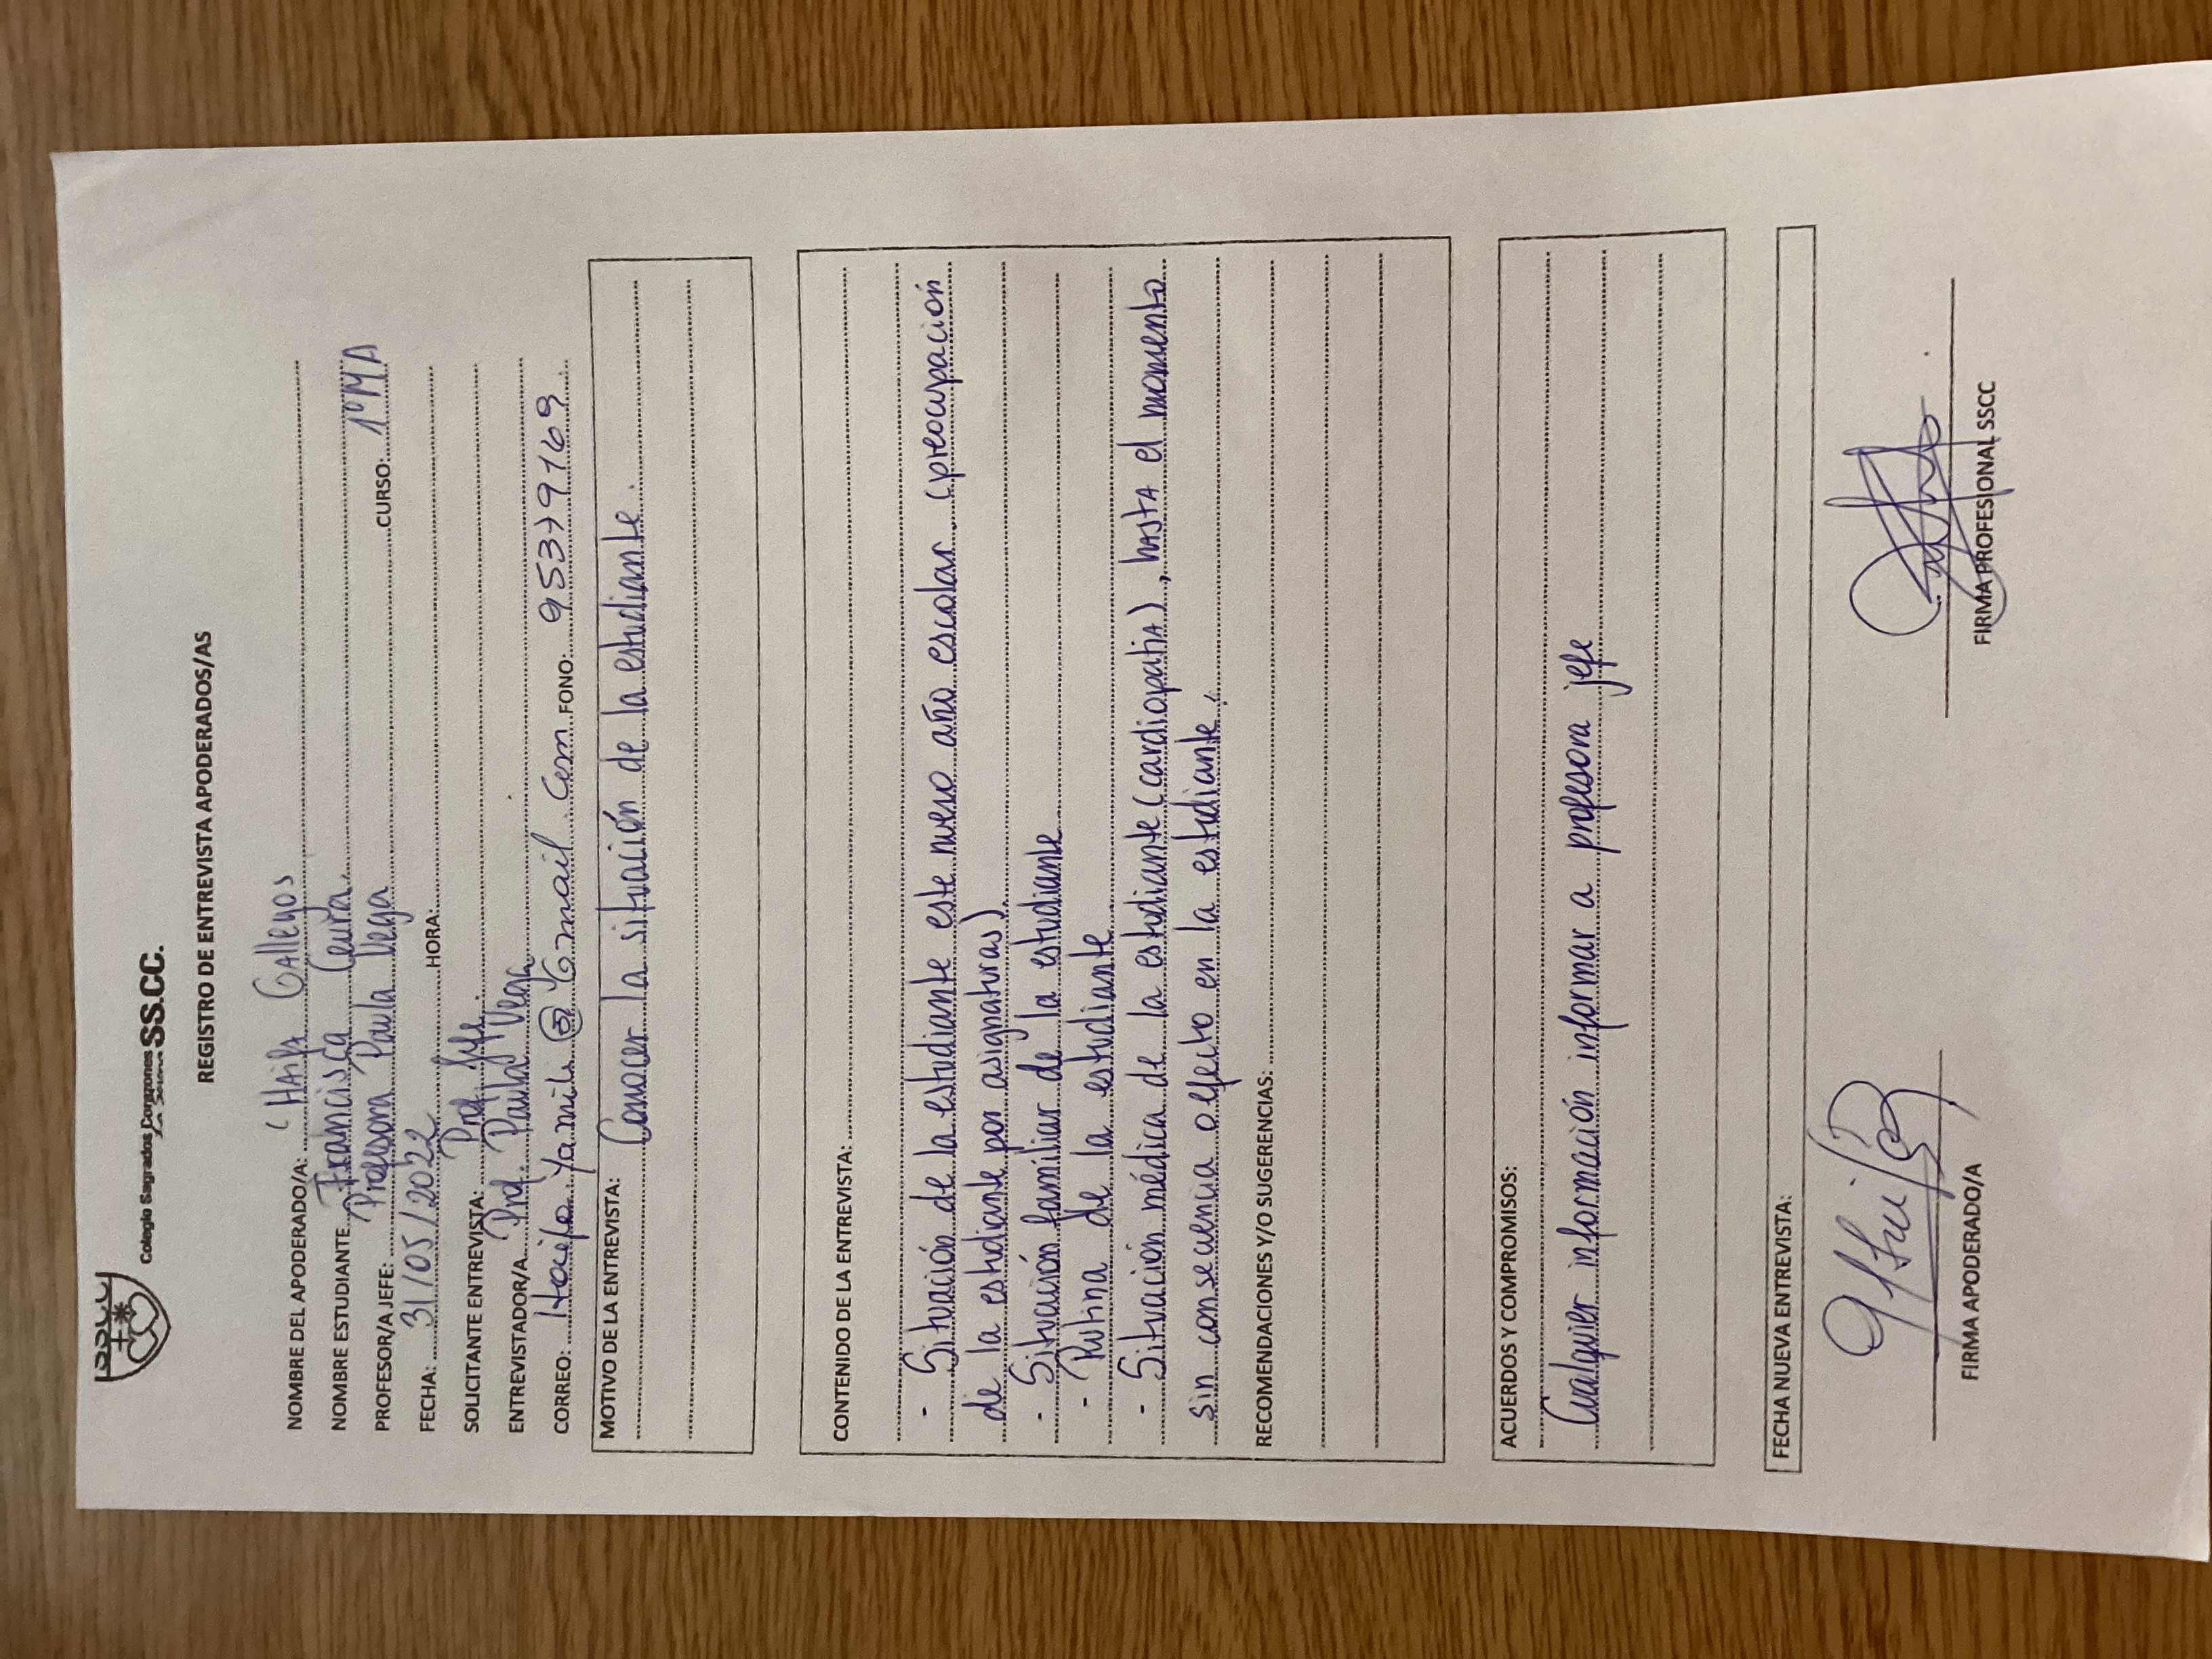 Colegio Sagrados Corazones SS.CC.
REGISTRO DE ENTREVISTA APODERADOS/AS
NOMBRE DEL APODERADO/A: Haifa Gallegos
NOMBRE ESTUDIANTE Francisca
PROFESOR/A JEFE: Profesora Paula Vega CURSO: 1ºMA
FECHA: 31/05/2022 HORA:
SOLICITANTE ENTREVISTA: Prof. Jefe.
ENTREVISTADOR/A Prof. Paula Vega
CORREO: @ Gmail.com FONO: 953799169
MOTIVO DE LA ENTREVISTA: Conocer la situación de la estudiante.
CONTENIDO DE LA ENTREVISTA:
- Situación de la estudiante este nuevo año escolar (preocupación
de la estudiante por asignaturas)
- Situación familiar de la estudiante
- Rutina de la estudiante
- Situación médica de la estudiante (cardiopatia), hasta el momento
sin consecuencia o efecto en la estudiante.
RECOMENDACIONES Y/O SUGERENCIAS:
ACUERDOS Y COMPROMISOS:
Cualquier información informar a profesora jefe
FECHA NUEVA ENTREVISTA:
FIRMA APODERADO/A FIRMA PROFESIONAL SSCC